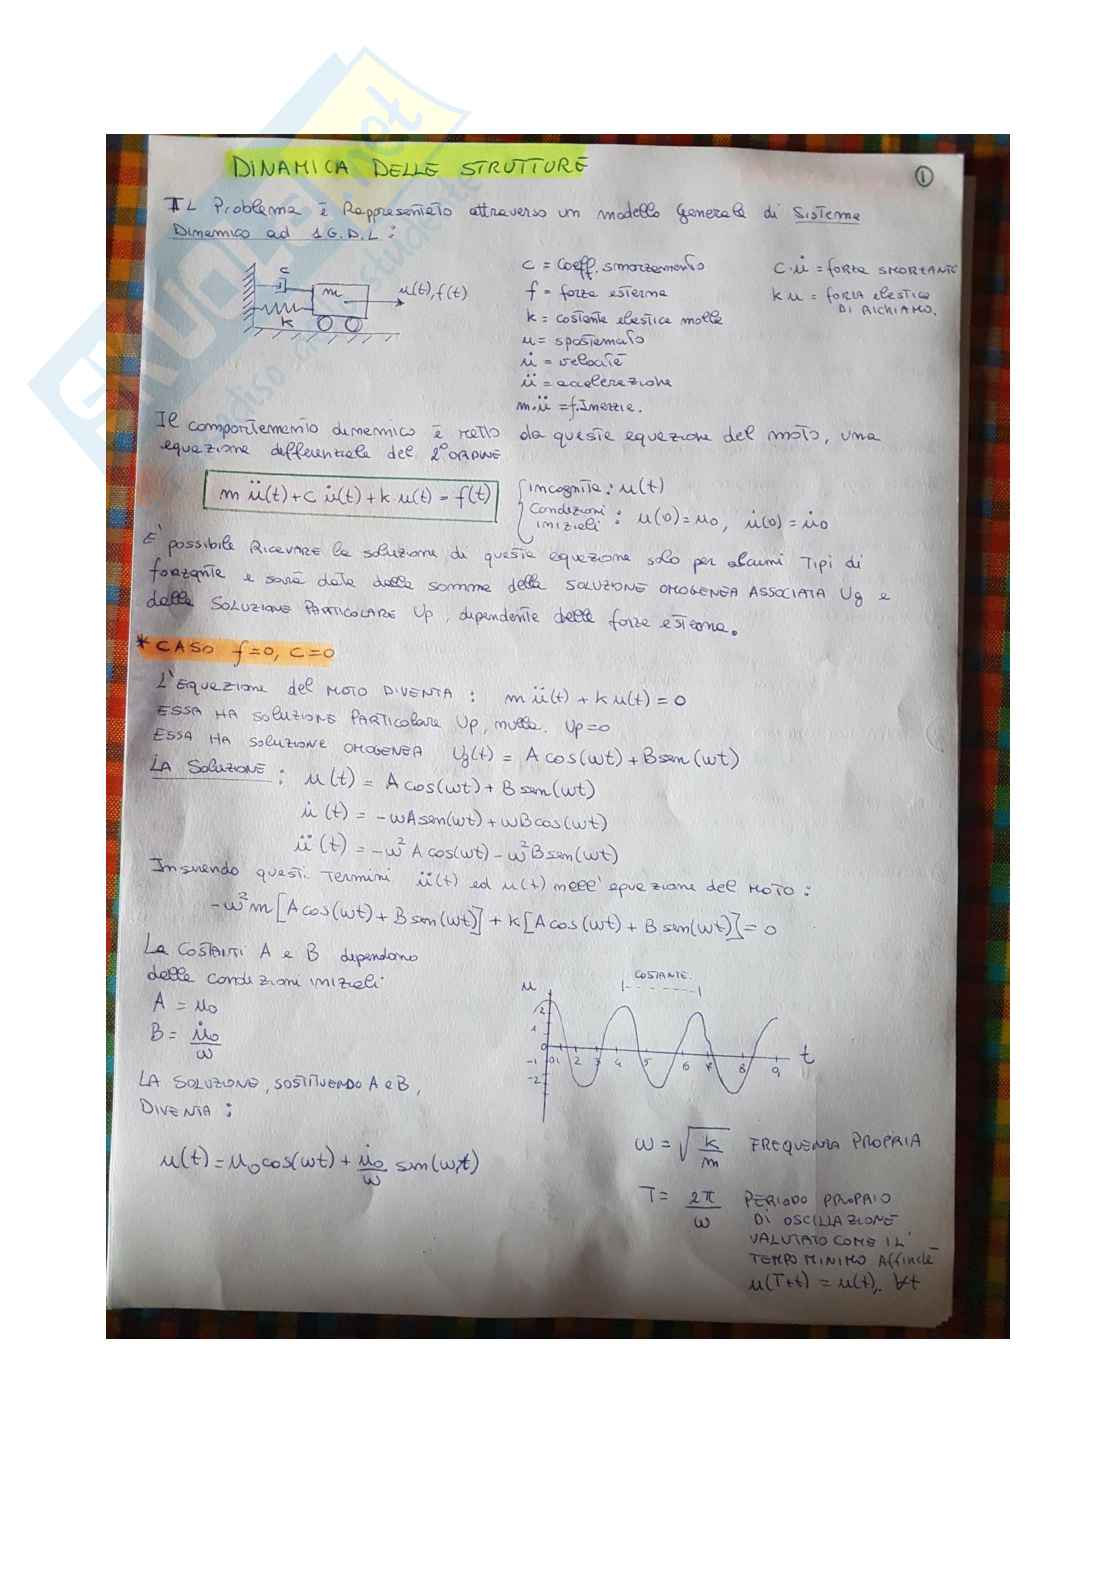 DINAMICA DELLE STRUTTURE
1
IL Problema è Rappresentato attraverso un modello Generale di Sistema
Dinamico ad 1 G.D.L:
c
m
k
u(t), f(t)
c = coeff. smorzamento
f = forza esterna
k = costante elastica molla
u = spostamento
u̇ = velocità
ü = accelerazione
m·ü = f. Inerzia.
c·u̇ = forza SMORZANTE
k u = forza elastica
DI RICHIAMO.
Il comportamento dinamico è retto da questa equazione del moto, una
equazione differenziale del 2° ORDINE
m ü(t) + c u̇(t) + k u(t) = f(t)
incognita: u(t)
condizioni
iniziali : u(0) = u0, u̇(0) = u̇0
E' possibile RICAVARE la soluzione di questa equazione solo per alcuni Tipi di
forzante e sarà data dalla somma della SOLUZIONE OMOGENEA ASSOCIATA Ug e
dalla SOLUZIONE PARTICOLARE Up, dipendente dalla forza esterna.
* CASO f=0, C=0
L'Equazione del MOTO DIVENTA : m ü(t) + k u(t) = 0
ESSA HA SOLUZIONE PARTICOLARE Up, nulla. Up=0
ESSA HA SOLUZIONE OMOGENEA Ug(t) = A cos(ωt) + B sen(ωt)
LA SOLUZIONE : u(t) = A cos(ωt) + B sen(ωt)
u̇(t) = -ωA sen(ωt) + ωB cos(ωt)
ü(t) = -ω² A cos(ωt) - ω² B sen(ωt)
Inserendo questi Termini ü(t) ed u(t) nell'equazione del MOTO :
-ω² m [A cos(ωt) + B sen(ωt)] + k [A cos(ωt) + B sen(ωt)] = 0
La COSTANTI A e B dipendono
dalle condizioni iniziali
A = u0
B = u̇0/ω
LA SOLUZIONE, SOSTITUENDO A e B,
DIVENTA :
u(t) = u0 cos(ωt) + u̇0/ω sen(ωt)
COSTANTE.
u
2
1
0
-1
-2
0 1 2 3 4 5 6 7 8 9
t
ω = √k/m FREQUENZA PROPRIA
T = 2π/ω PERIODO PROPRIO
DI OSCILLAZIONE
VALUTATO COME IL
TEMPO MINIMO Affinchè
u(T+t) = u(t), ∀t